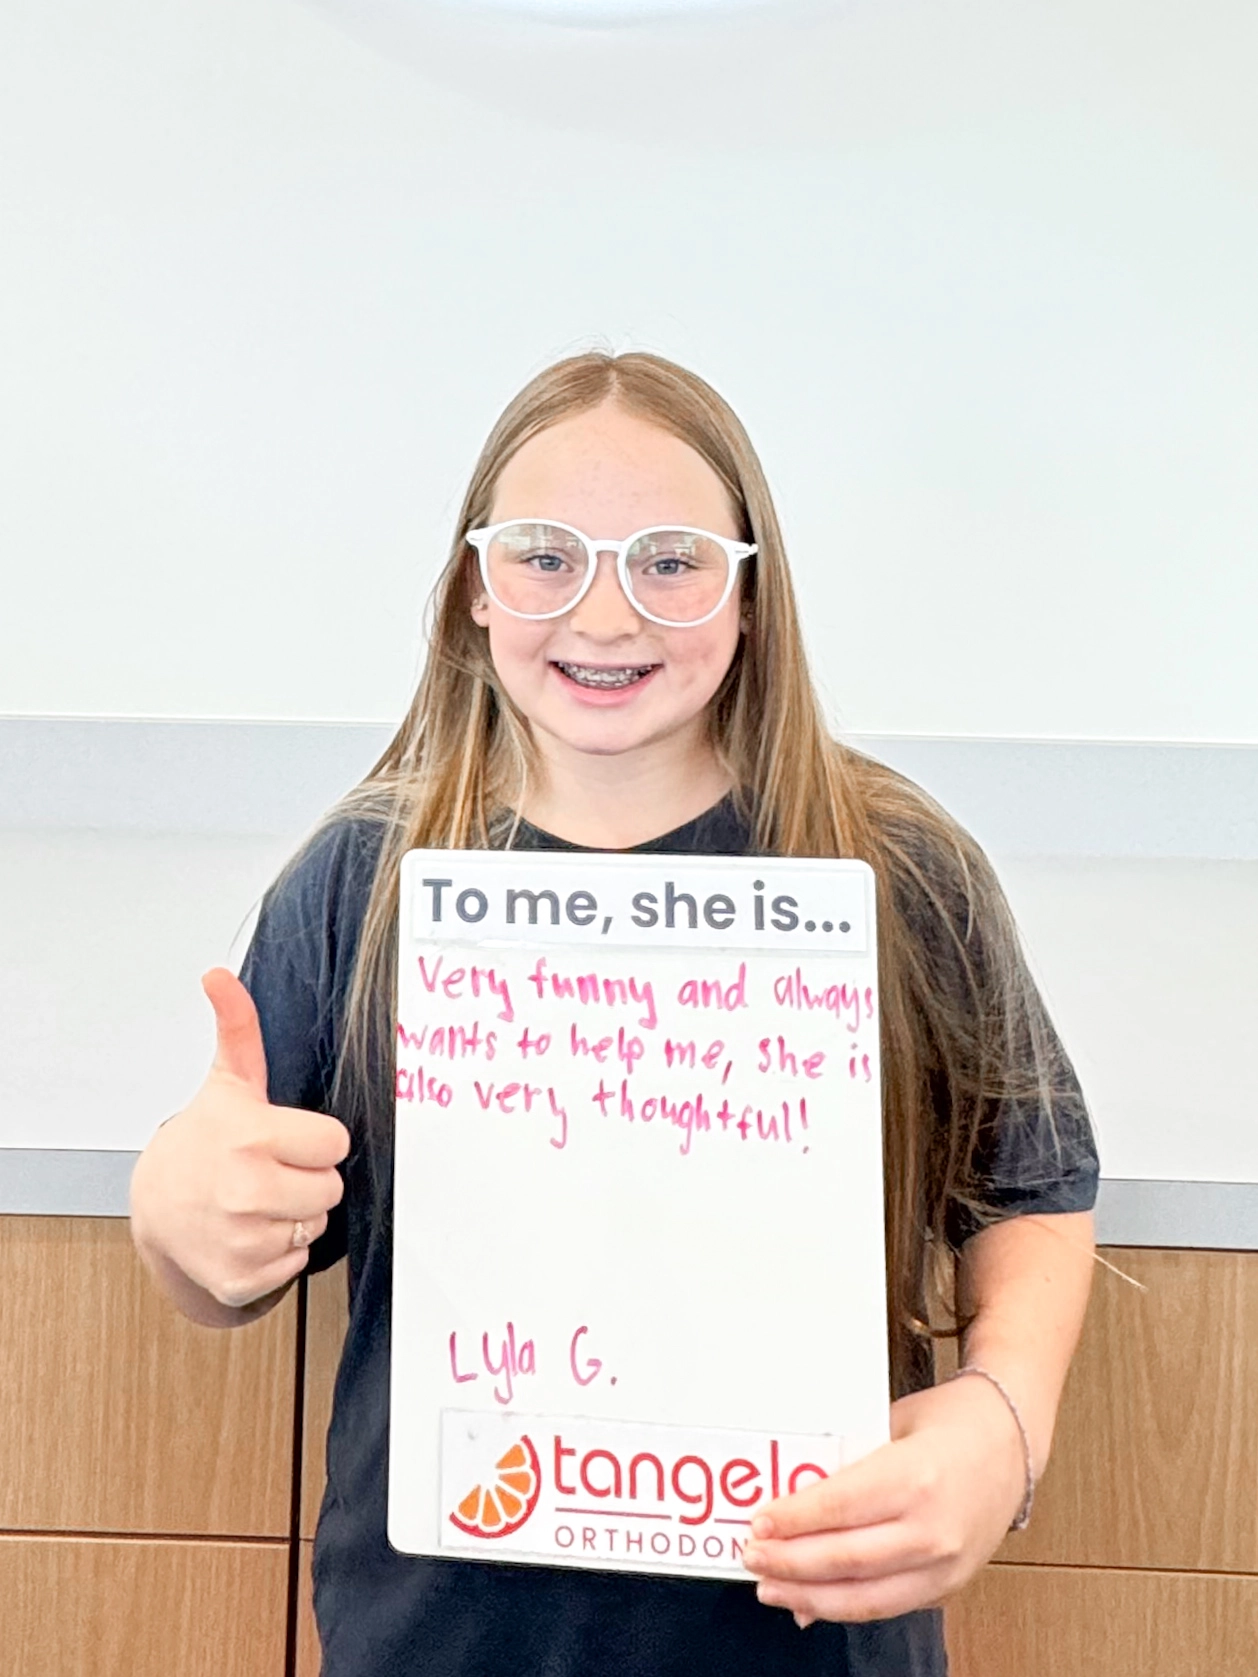 To me, she is...
Very funny and always
wants to help me, she is
also very thoughtful!
Lyla G.
tangelo
ORTHODON